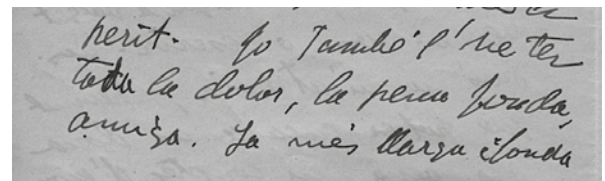 perit. Jo També l'he ten
tota la dolor, la pena fonda,
amiga. La més llarga i fonda